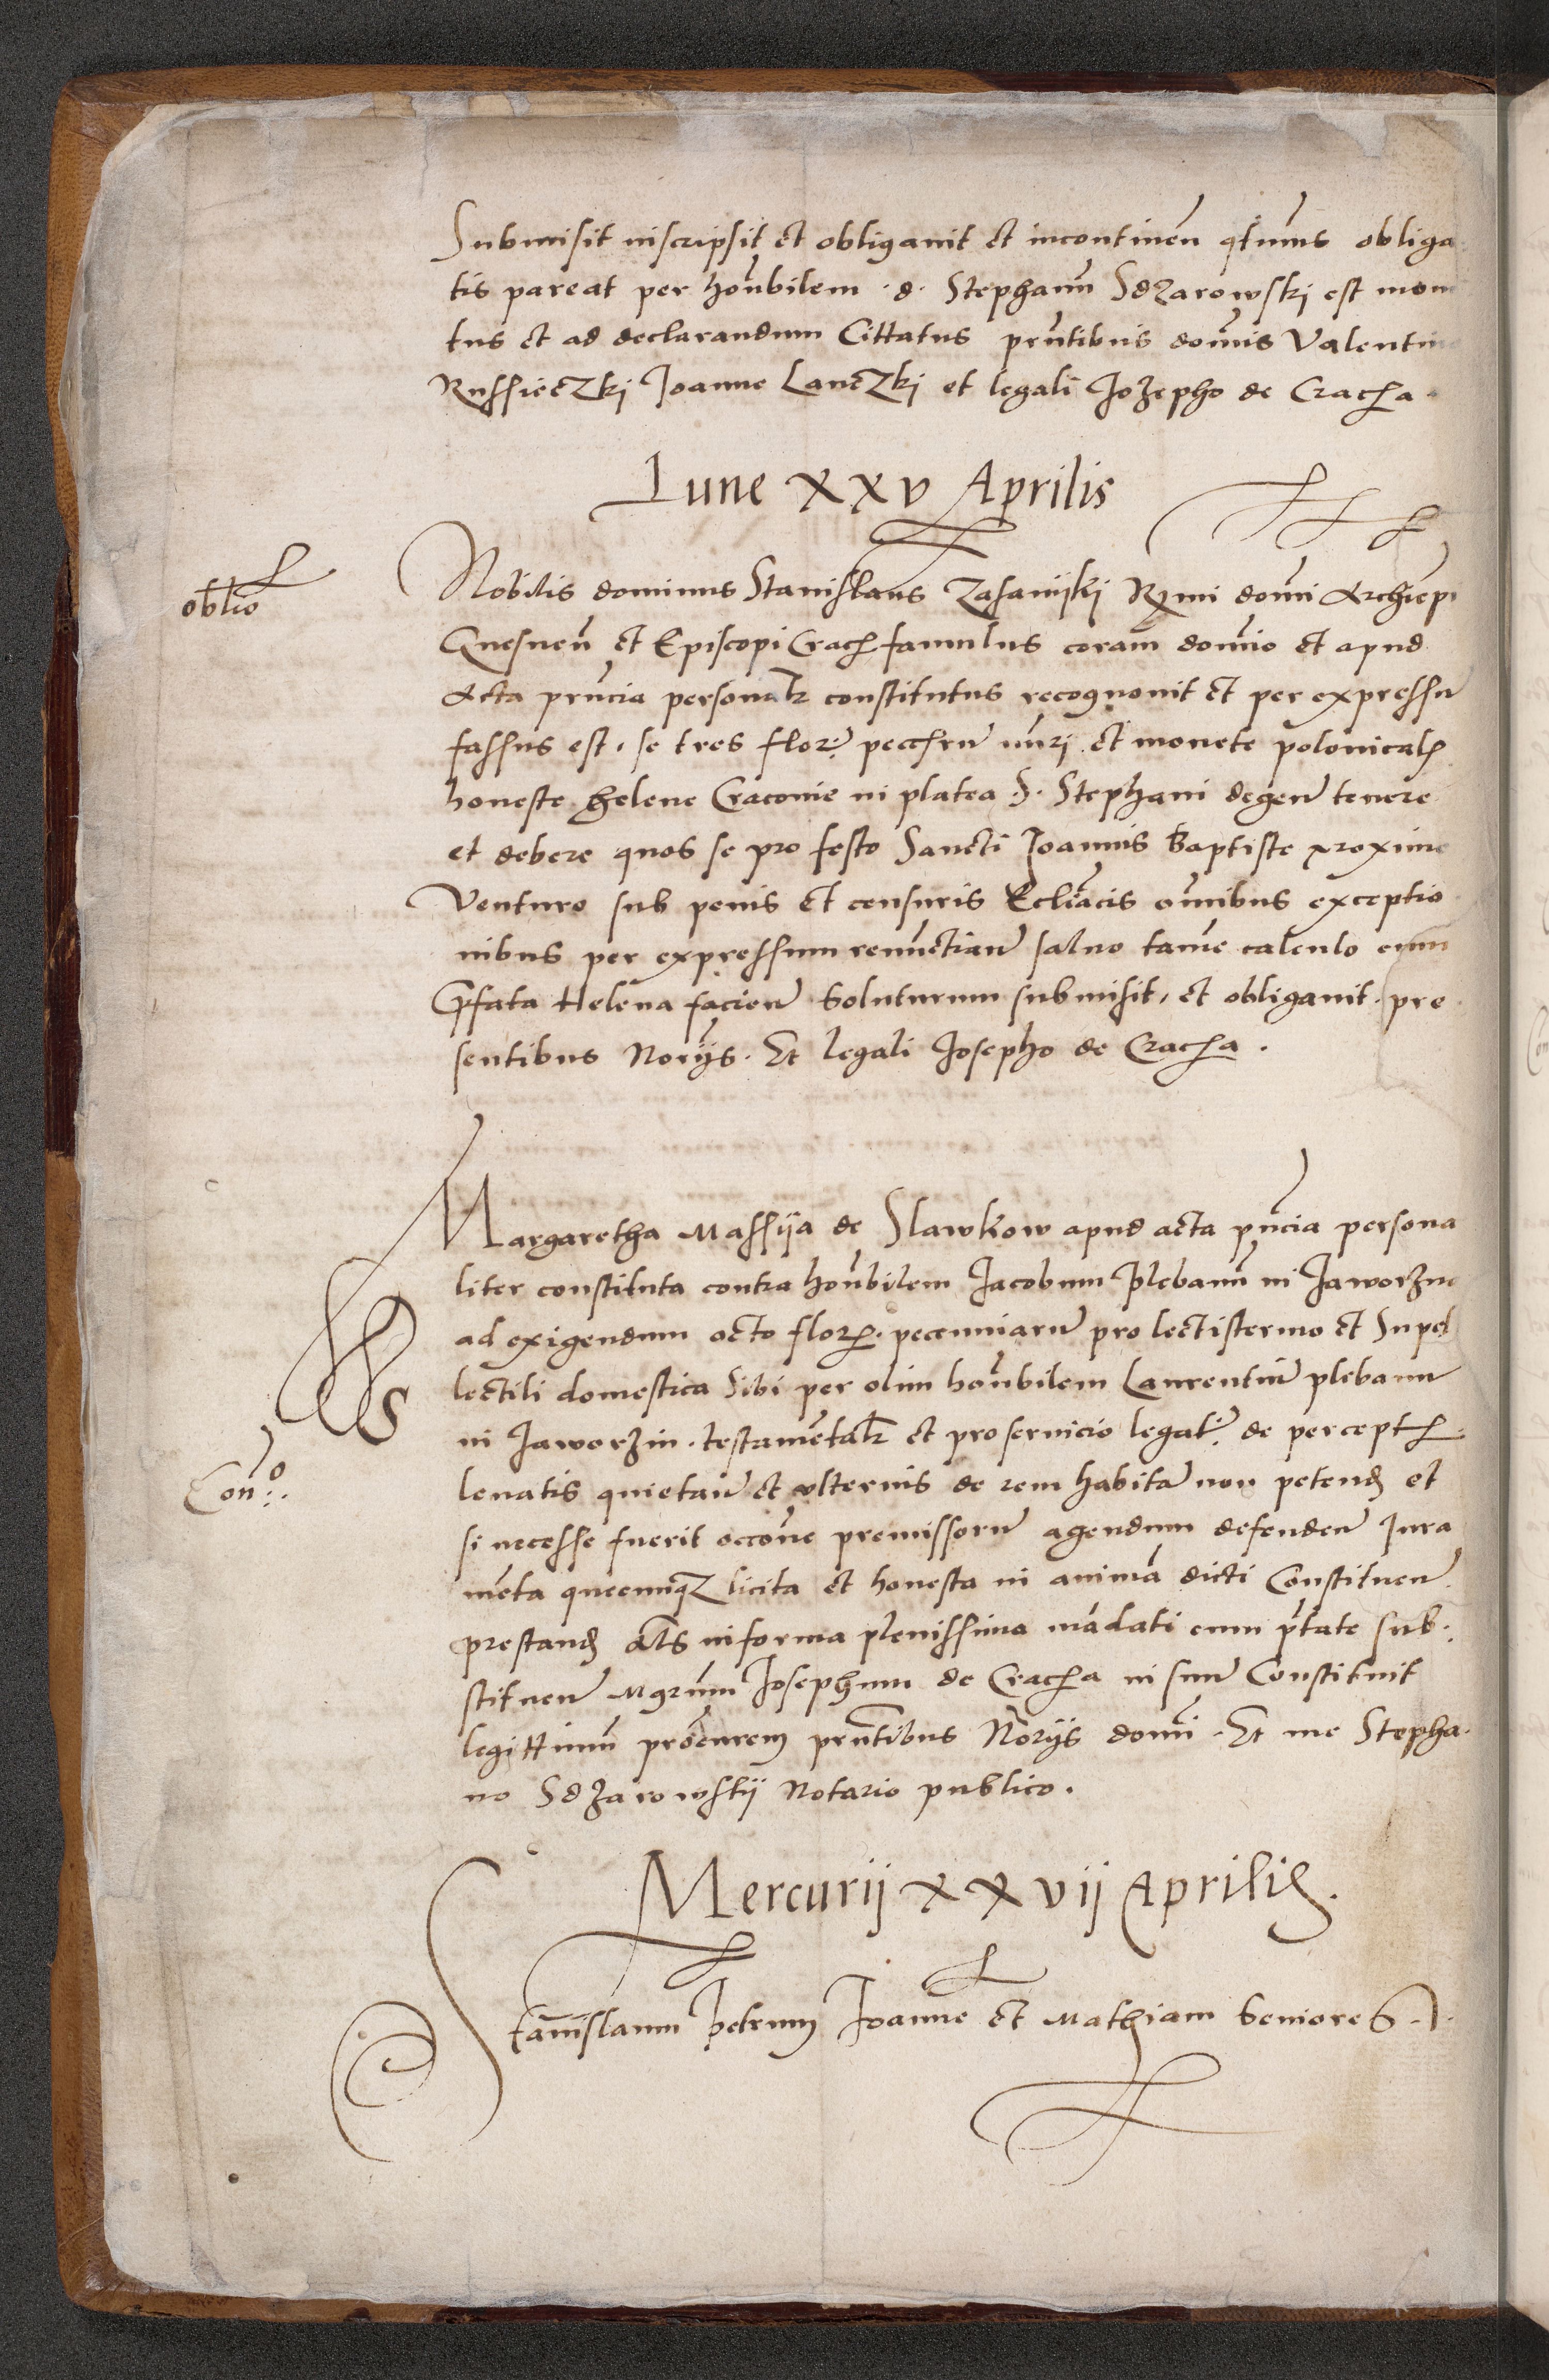 Submisit inscripsit et obligavit et incontinen qtum̃s obliga
tis pareat per hon̄bilem d. Stephanũ Sdzarowskj est moni
tus et ad declarandum Cittatus prñtibus dom̃is Valentino
Russieczkj Joanne Lanczkj et legali Jozepho de Crach̃a
Lune XXV Aprilis
oblio
Nobilis dominus Stanislaus Rm̃i dom̃i Archiepi
Gnesnen̄ et Episcopi Crach famulus coram domĩo et apud
Acta prñcia personalr constitutus recognovit et per expressũ
fassus est se tres flor. pecc̃rũ nũrj et monete polonicalr
honeste Helene Cracovie in platea S. Stephani degeñ tenere
et debere quos se pro festo Sancti Joannis Baptiste proxime
Venturo sub penis et censuris Eccliãcis om̃ibus exceptio
nibus per expressum renunctiañ salvo tamẽ calculo cum
Pfata Helena facieñ Soluturum submisit, et obligavit pre
sentibus Norijs. Et legali Josepho de Crach̃a.
Margaretha Massija de Slawkow apud acta pñcia persona
liter constituta contra hon̄bilem Jacobum plebanũ in Jaworzno
ad exigendum octo flor. peccuniarũ pro lectisternio et Supel
lectili domestica Sibi per olim hon̄bilem Laurentiũ plebanũ
S
in Jaworzin. testamẽtalr et pro servicio legat. de percept.
Con:o
levatis quietañ et ulterius de rem habitã non petend et
si necesse fuerit occoñe premissorũ agendum defendeñ Jura
mẽta quecumqz licita et honesta in animã dicti Constitueñ
prestand als in forma plenissima mãdati cum p̃tate sub
stitueñ Mgrũm Josephum de Crach̃a in suũ Constituit
legittimũ procũrem prñtibus Norijs dom̃i. Et me Stepha
no Sdzarowskij Notario publico.
Mercurij XXVij Aprilis.
Stanislaum Petrum Joannẽ et Mathiam Seniores